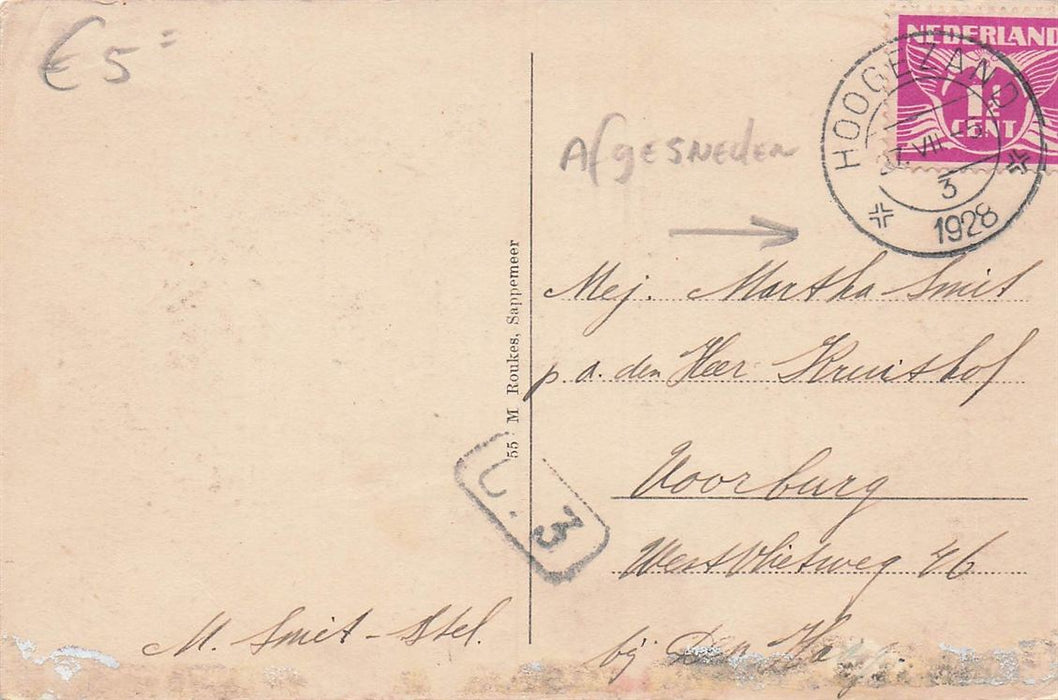 € 5=
NEDERLAND
1½
CENT
HOOGEZAND
VII
3
1928
Afgesneden
55 M Roukes, Sappemeer
Mej. Martha Smit
p. a. den Heer Kruishof
Voorburg
Westvlietweg 46
bij Den
3
M. Smit-Stel.